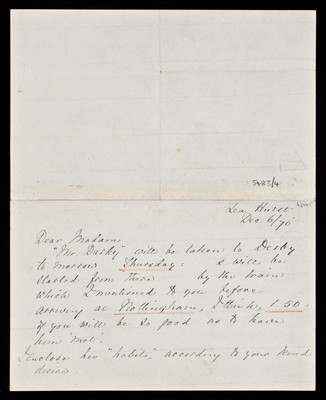 5483/4
Lea Hurst
Dec 6/76
Dear Madam
"Mr Darky" will be taken to Derby
to morrow Thursday: & will be
started from there by the train
which I mentioned to you before
arriving at Nottingham, I think, 1.50.
if you will be so good as to have
him 'met'.
I enclose his "habits," according to your kind
desire